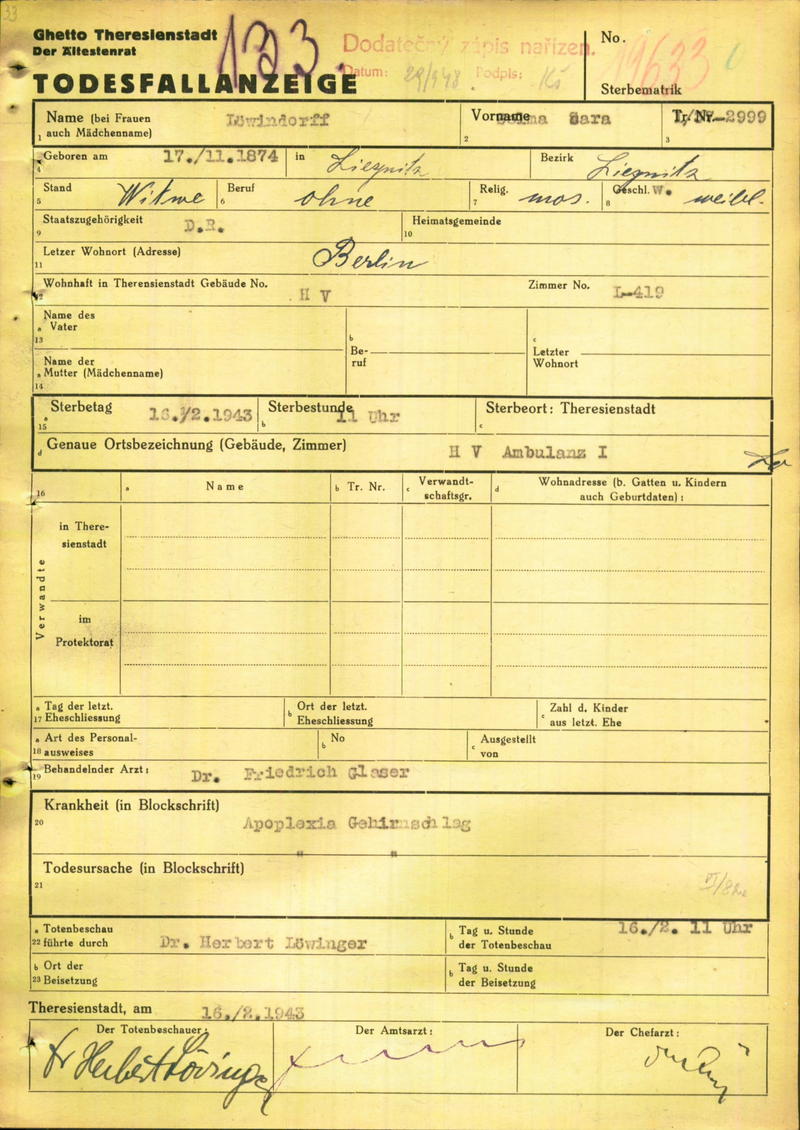 33
Ghetto Theresienstadt
Der Ältestenrat
TODESFALLANZEIGE
133
Dodatečný zápis nařízen.
Datum: 29/948 Podpis:
No. 19633
Sterbematrik
Name (bei Frauen Löwindorff
1 auch Mädchenname)
Vorname Sara
2
Tr. Nr. 2999
3
Geboren am 17./11.1874 in Liegnitz Bezirk Liegnitz
4
Stand Witwe Beruf ohne Relig. mos. Geschl. W. weibl.
5 6 7 8
Staatszugehörigkeit D.R. Heimatsgemeinde
9 10
Letzer Wohnort (Adresse) Berlin
11
Wohnhaft in Theresienstadt Gebäude No. H V Zimmer No. L-419
12
Name des
a Vater
13
Name der
a Mutter (Mädchenname)
14
b
Be-
ruf
c
Letzter
Wohnort
Sterbetag 16./2.1943 Sterbestunde 11 Uhr Sterbeort: Theresienstadt
a 15 b c
d Genaue Ortsbezeichnung (Gebäude, Zimmer) H V Ambulanz I
16 a Name b Tr. Nr. c Verwandt-
schaftsgr. d Wohnadresse (b. Gatten u. Kindern
auch Geburtdaten):
Verwandte
in There-
sienstadt
im
Protektorat
a Tag der letzt.
17 Eheschliessung
b Ort der letzt.
Eheschliessung
c Zahl d. Kinder
aus letzt. Ehe
a Art des Personal-
18 ausweises
b No
c Ausgestellt
von
19 Behandelnder Arzt: Dr. Friedrich Glaser
Krankheit (in Blockschrift)
20
Apoplexia Gehirnschlag
" "
Todesursache (in Blockschrift)
21
a Totenbeschau
22 führte durch Dr. Herbert Löwinger
b Tag u. Stunde 16./2. 11 Uhr
der Totenbeschau
b Ort der
23 Beisetzung
b Tag u. Stunde
der Beisetzung
Theresienstadt, am 16./2.1943
Der Totenbeschauer: Der Amtsarzt: Der Chefarzt:
Dr Herbert Löwinger